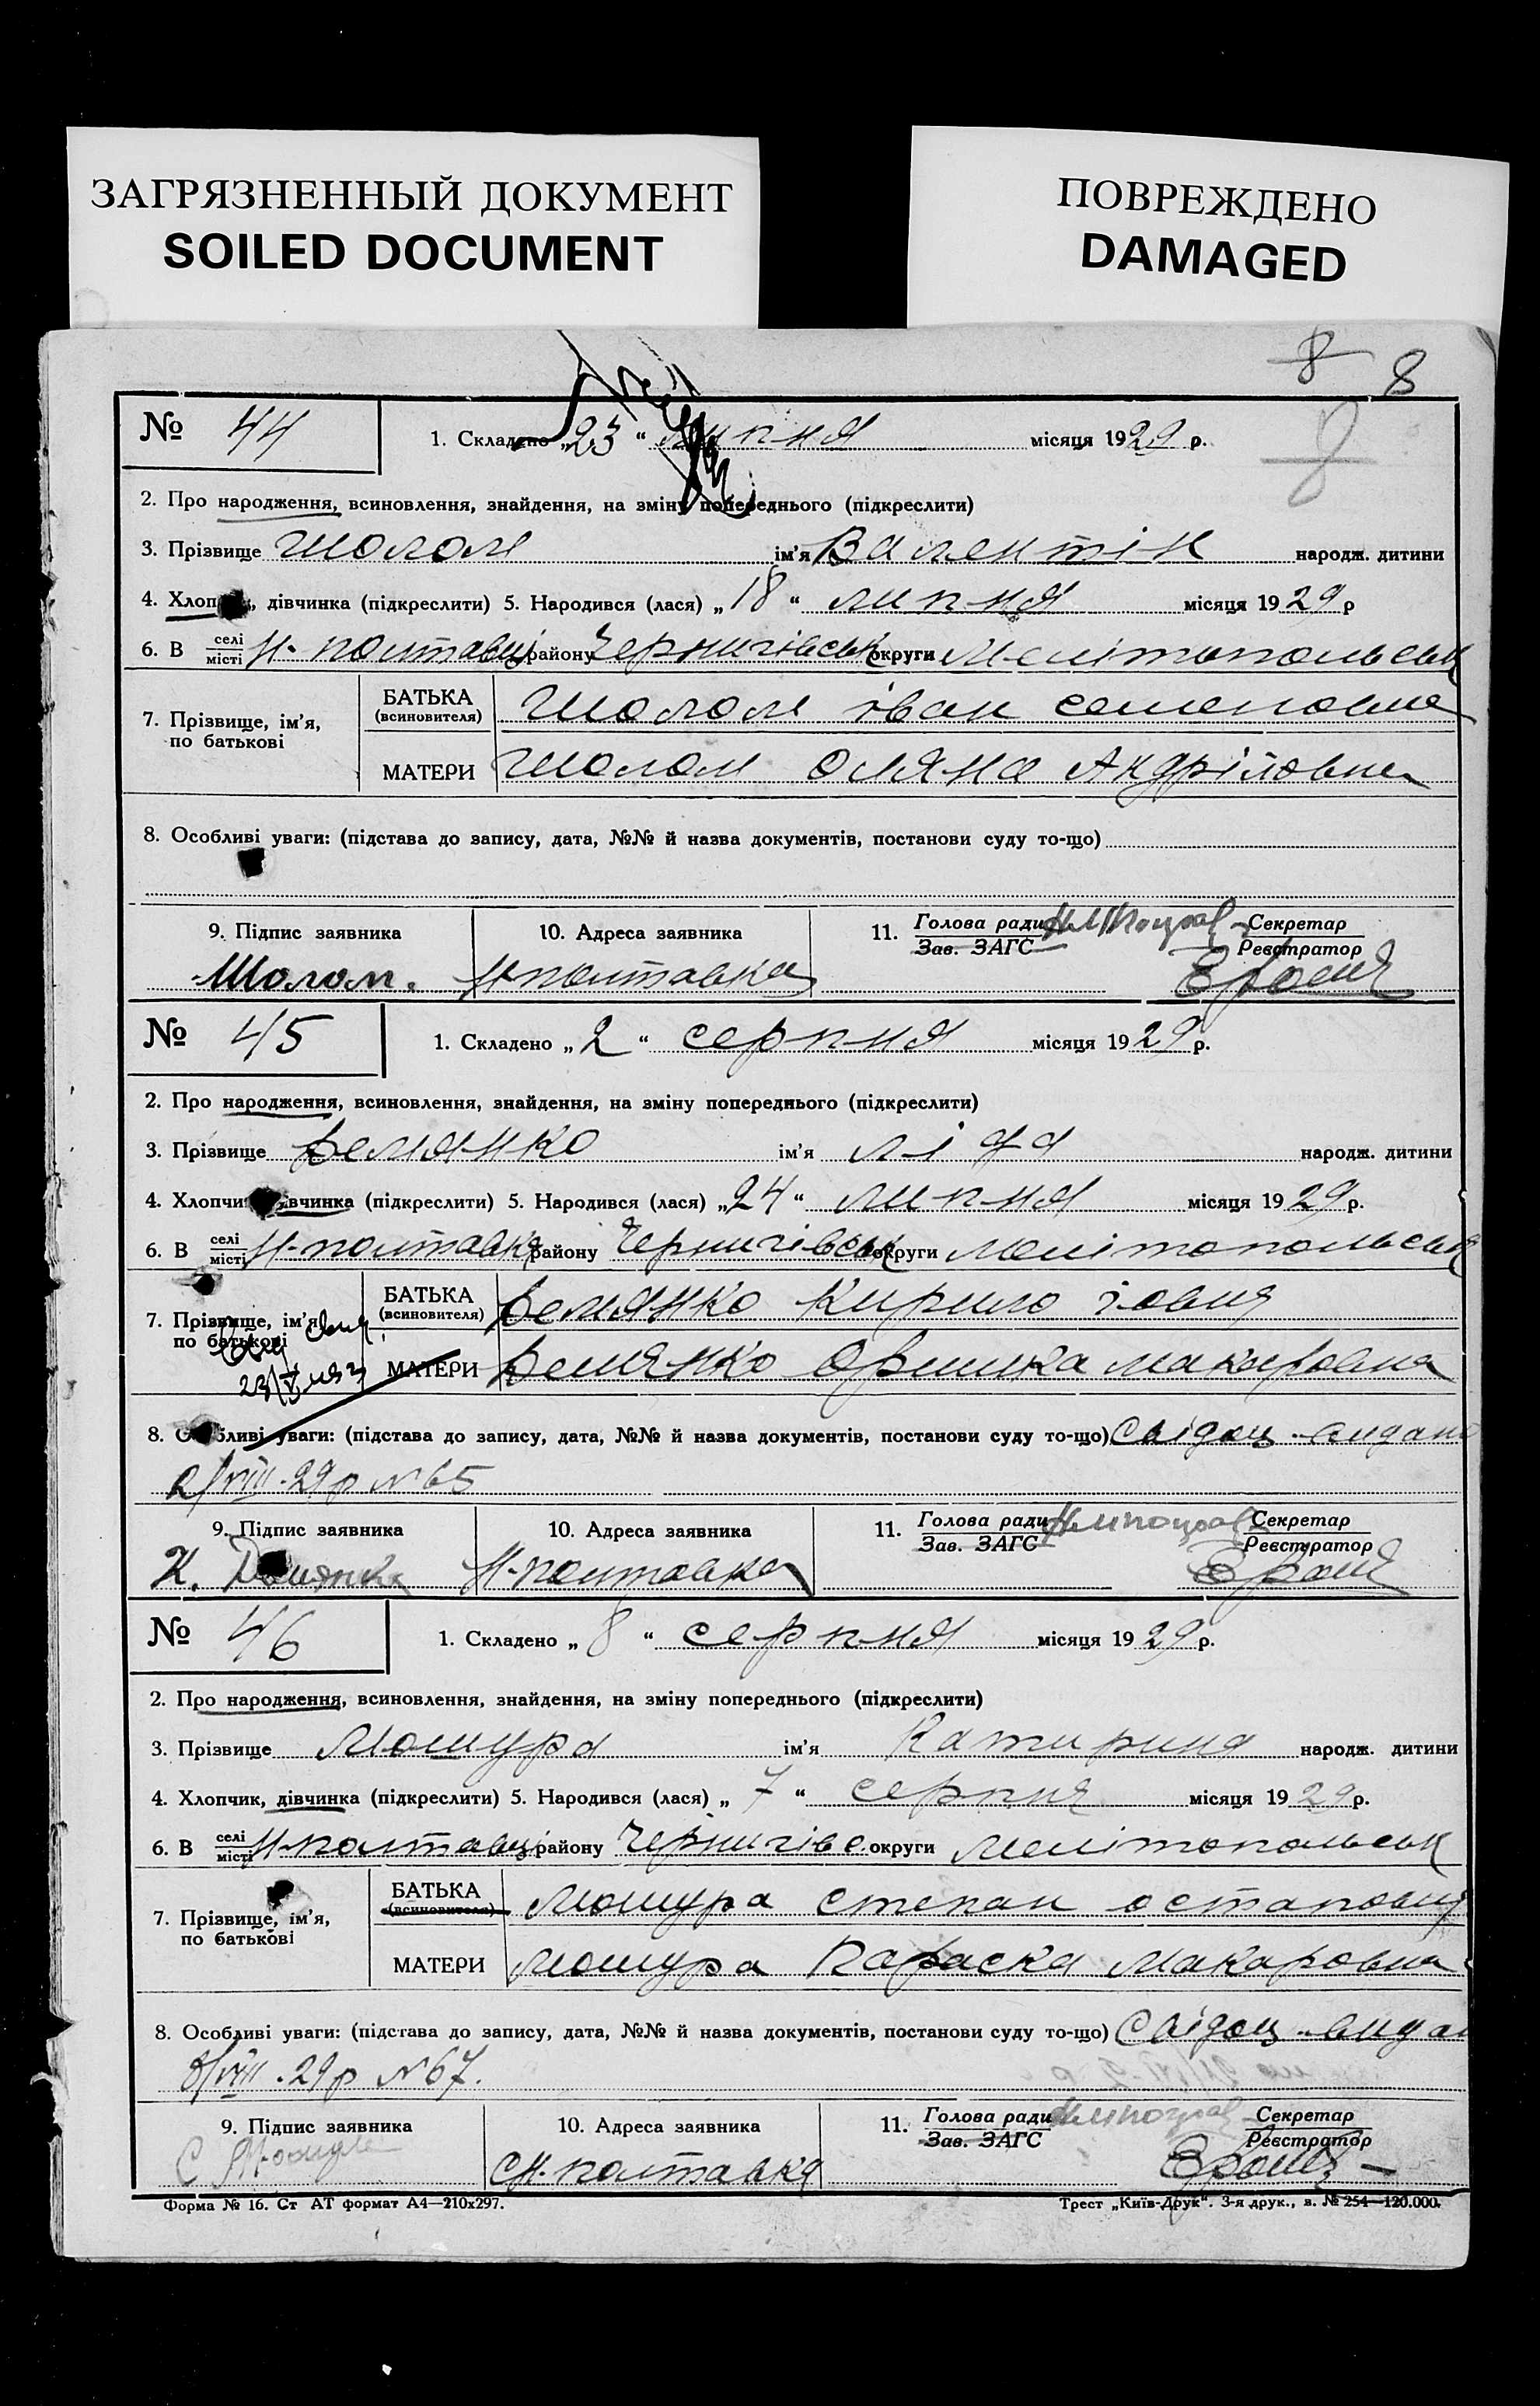 ЗАГРЯЗНЕННЫЙ ДОКУМЕНТ
SOILED DOCUMENT
ПОВРЕЖДЕНО
DAMAGED
8 8
8
№ 44
1. Складено „23“ липня місяця 1929 р.
2. Про народження, всиновлення, знайдення, на зміну попереднього (підкреслити)
3. Прізвище Шолом ім'я Валентін народж. дитини
4. Хлоп , дівчинка (підкреслити) 5. Народився (лася) „18“ липня місяця 1929 р
6. В селі/місті Н-полтавці району Чернигівськ округи Мелітопольськ
7. Прізвище, ім'я, по батькові
БАТЬКА (всиновителя) Шолом іван семенович
МАТЕРИ Шолом Оляна Андріювна
8. Особливі уваги: (підстава до запису, дата, №№ й назва документів, постанови суду то-що)
9. Підпис заявника 10. Адреса заявника 11. Голова ради Секретар
Зав. ЗАГС Реєстратор
Шолом. Н полтавка
№ 45
1. Складено „2“ серпня місяця 1929 р.
2. Про народження, всиновлення, знайдення, на зміну попереднього (підкреслити)
3. Прізвище Демянко ім'я Ліда народж. дитини
4. Хлопчи вчинка (підкреслити) 5. Народився (лася) „24“ липня місяця 1929 р.
6. В селі/місті Н-полтавка району Чернигівськ округи Мелітопольськ
7. Прізвище, ім'я, по батькові
БАТЬКА (всиновителя) Демянко Кирило
МАТЕРИ Демянко Оришка макаровна
8. Особливі уваги: (підстава до запису, дата, №№ й назва документів, постанови суду то-що) Свідоц. видано
2/VIII-29р №65
9. Підпис заявника 10. Адреса заявника 11. Голова ради Секретар
Зав. ЗАГС Реєстратор
К. Н-полтавка
№ 46
1. Складено „8“ серпня місяця 1929 р.
2. Про народження, всиновлення, знайдення, на зміну попереднього (підкреслити)
3. Прізвище Мошура ім'я Катирина народж. дитини
4. Хлопчик, дівчинка (підкреслити) 5. Народився (лася) „7“ серпня місяця 1929 р.
6. В селі/місті Н-полтавці району Чернигівс. округи Мелітопольськ
7. Прізвище, ім'я, по батькові
БАТЬКА (всиновителя) Мошура степан остапович
МАТЕРИ Мошура Параска Макаровна
8. Особливі уваги: (підстава до запису, дата, №№ й назва документів, постанови суду то-що) Свідоц. видан
8/VIII.29р №67.
9. Підпис заявника 10. Адреса заявника 11. Голова ради Секретар
Зав. ЗАГС Реєстратор
Н-полтавка
Форма № 16. Ст АТ формат А4—210х297. Трест „Київ-Друк“. 3-я друк., з. № 254—120.000.